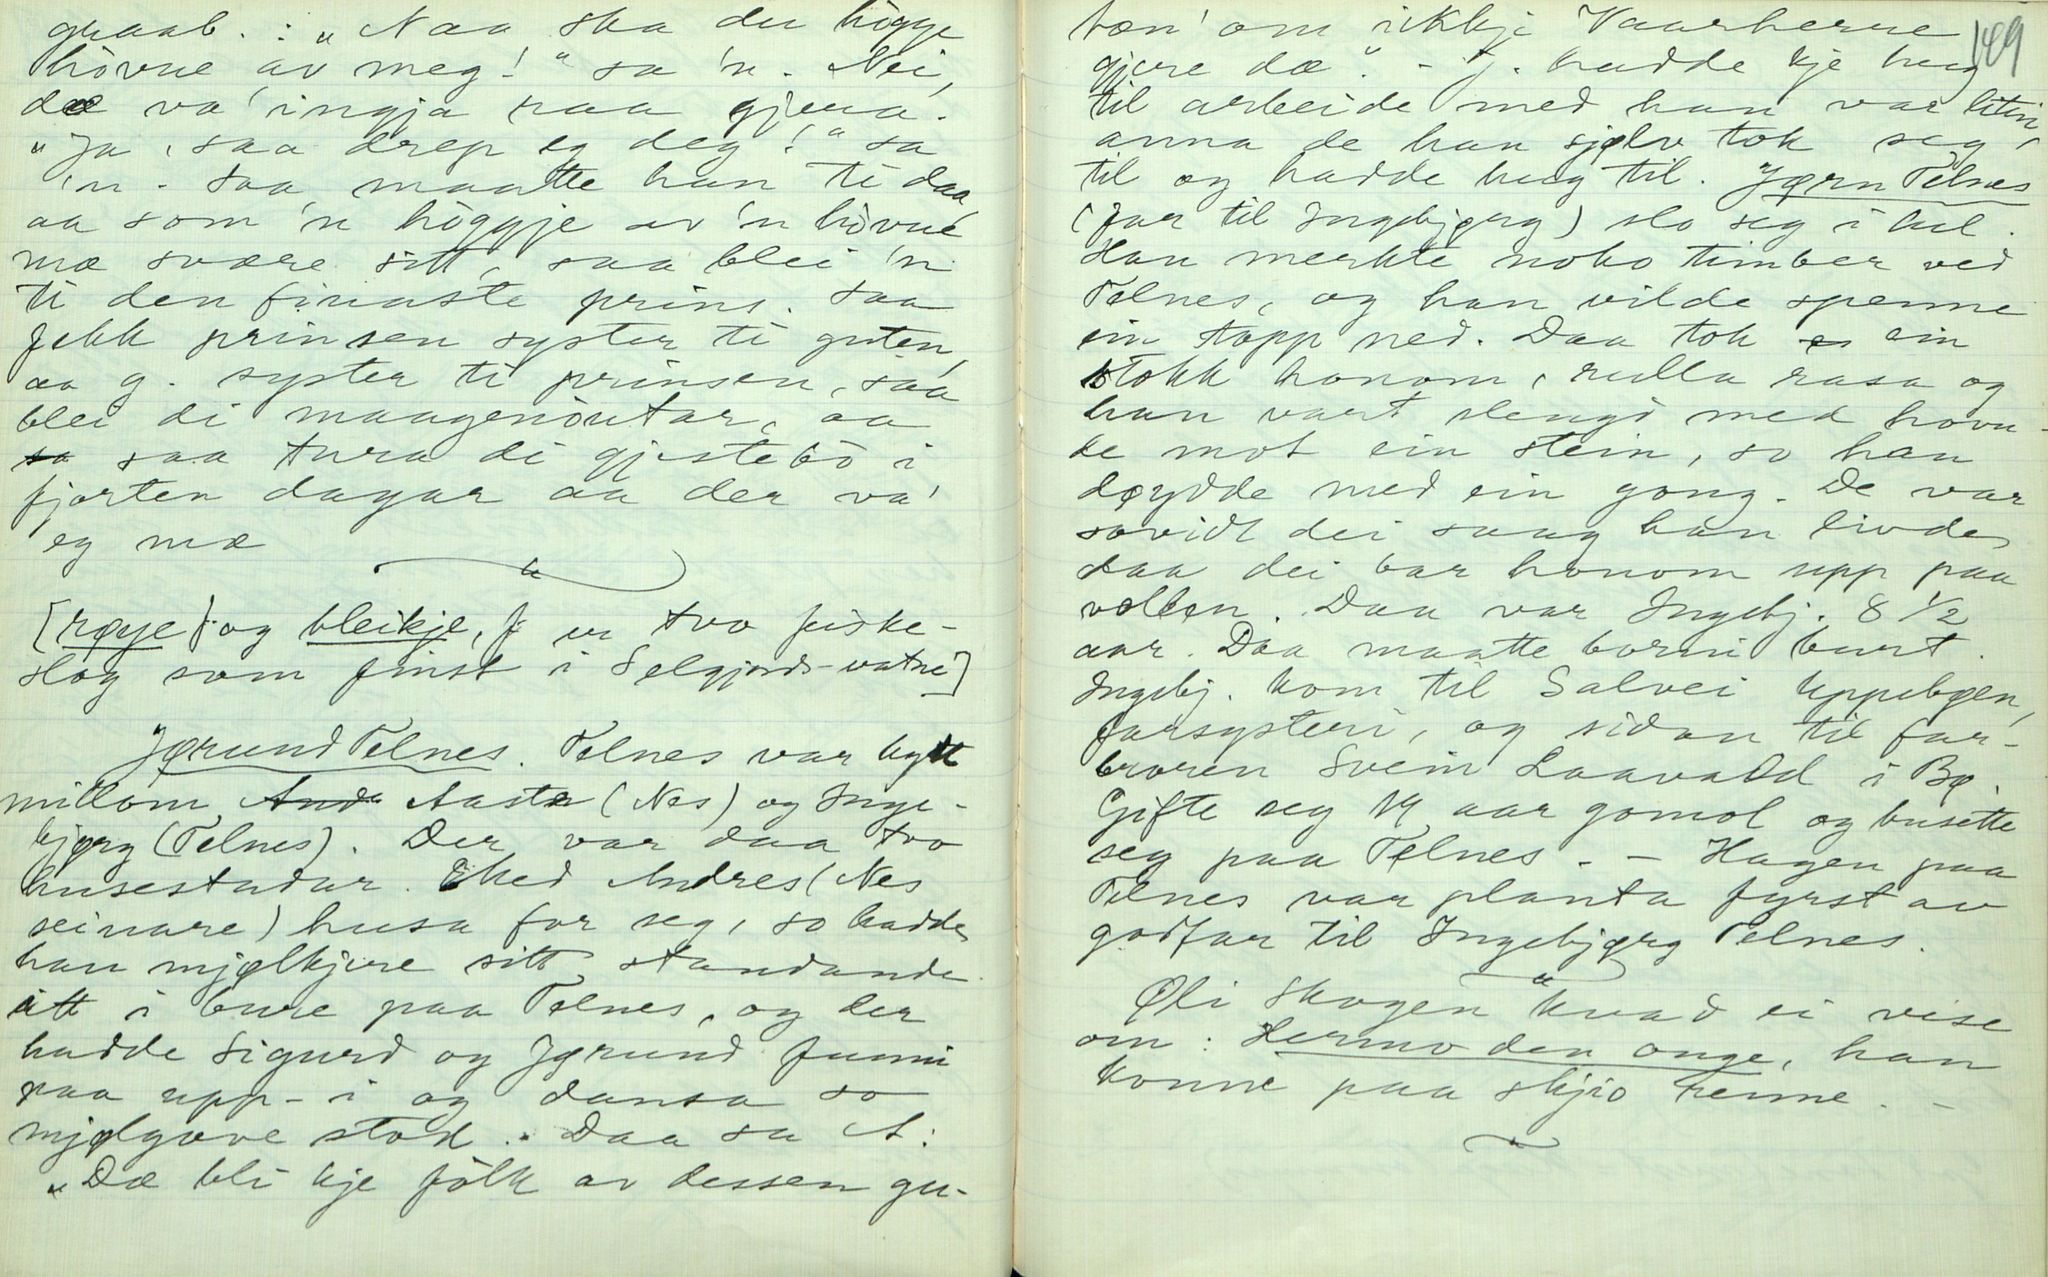 graab. : „Naa ska du högge
hövue av meg!" sa 'n. Nei,
dæ va' ingja raa gjera.
„Ja, saa drep eg deg!" sa
'n. Saa maatte han ti daa,
aa som 'n höggje av 'n hövue
mæ svære sitt, saa blei 'n
ti den finaste prins. Saa
fekk prinsen syster ti guten,
aa g. syster ti prinsen, saa
blei di maagenöutar, aa
saa tura di gjestebö i
fjorten dagar aa der va'
eg mæ
[røye og bleikje, er tvo fiske-
slag som finst i Selgjords-vatni]
Jørund Telnes. Telnes var bytt
millom Aasta (Nes) og Inge-
bjørg (Telnes). Der var daa tvo
husestadar. Med Andres (Nes
seinare) husa for seg, so hadde
han mjølkjere sitt standande
att i bure paa Telnes, og der
hadde Sigurd og Jørund funni
paa upp-i og dansa so
mjølgove stod. Daa sa A:
„Dæ bli kje fölk av dessen gu-
149
tæn' om ikkje Vaarherre
gjere dæ". - J. hadde kje hug
til arbeide med han var liten,
anna de han sjølv tok seg
til og hadde hug til. Jørn Telnes
(far til Ingebjørg) slo seg i hel.
Han merkte noko timber ved
Telnes, og han vilde spenne
ein stopp ned. Daa tok ein
stokk honom, rulla rasa og
han vart slengd med hovu-
de mot ein stein, so han
døydde med ein gong. De var
sovidt dei saag han livde
daa dei bar honom upp paa
vollen. Daa var Ingebj. 8 1/2
aar. Daa maatte borni burt.
Ingebj. kom til Salvei Uppebøen,
farsysteri, og sidan til far-
broren Svein Laavadd i Bø.
Gifte seg 19 aar gomol og busette
seg paa Telnes. - Hagen paa
Telnes var planta fyrst av
godfar til Ingebjørg Telnes.
Øli Skogen kvad ei vise
om: Hermo den onge, han
konne paa skjio renne. -